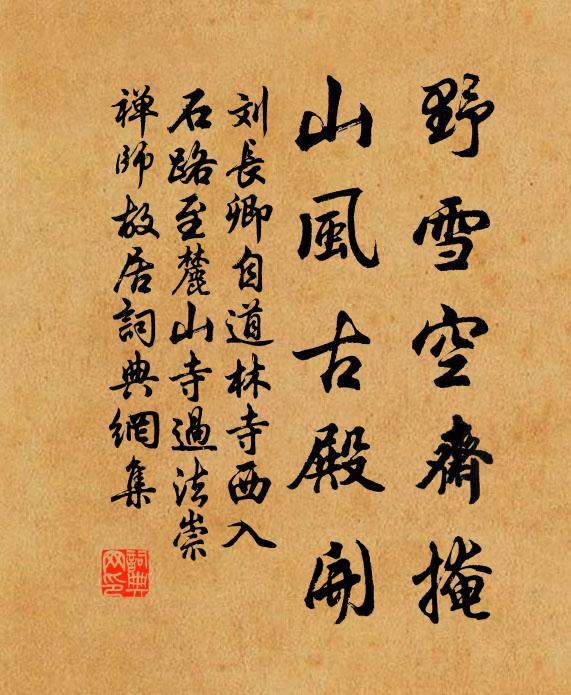 野雪空齋掩
山風古殿開
刘長卿自道林寺西入
石路至麓山寺過法崇
禅師故居詞典網集
詞典网印